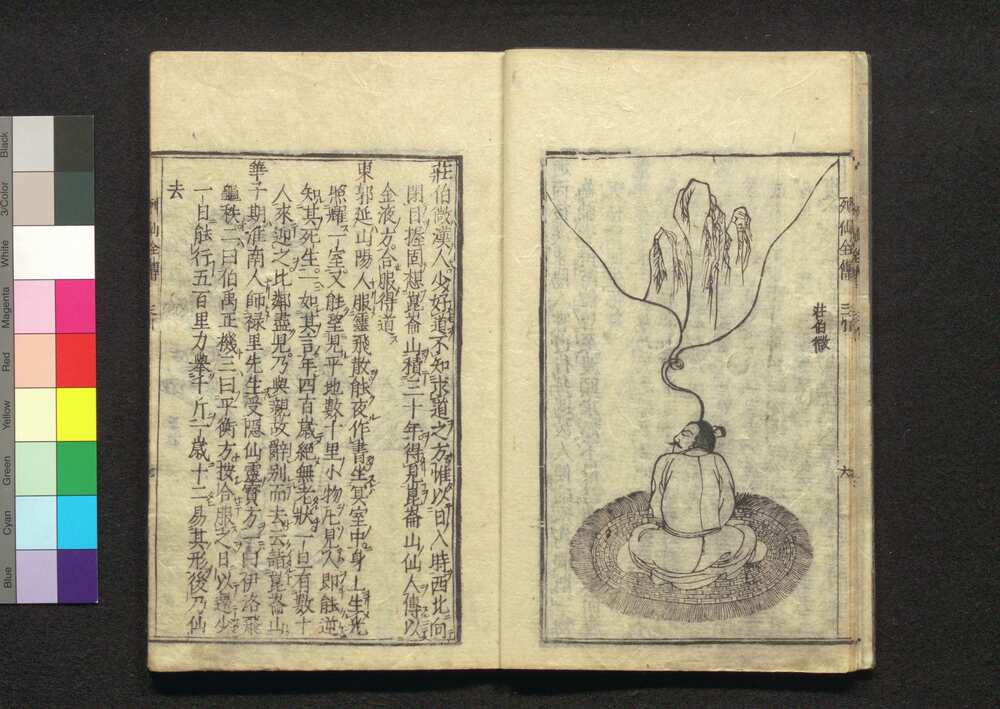 Black
3/Color
White
Magenta
Red
Yellow
Green
Cyan
Blue
列仙全傳
莊伯微
莊伯微漢人少好道不知求道之方惟以日入時西北向
閉目握固想崑崙山積三十年得見崑崙山仙人傳以
金液方合服得道
東郭延山陽人服靈飛散能夜作書坐冥室中身上生光
照耀一室又能望見平地數十里小物凡見人即能逆
知其死生一一如其言年四百歲絕無老狀一旦有數十
人來迎之比鄰盡見乃與親故辭別而去云詣崑崙山
華子期淮南人師祿里先生受隱仙靈寶方一曰伊洛飛
龜秩二曰伯禹正機三曰平衡方按合服之日以還少
一日能行五百里力舉千斤一歲十二易其形後乃仙
去